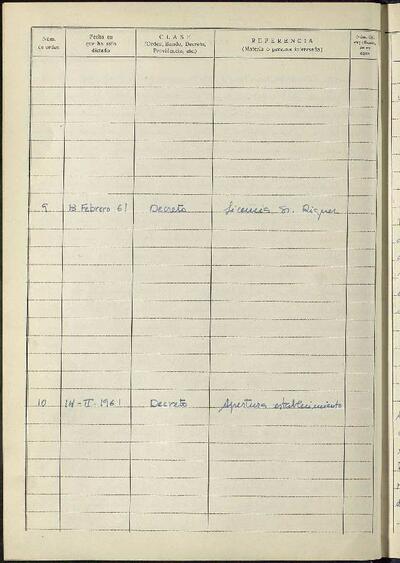 Núm. de orden
Fecha en que ha sido dictado
CLASE
(Orden, Bando, Decreto, Providencia, etc.)
REFERENCIA
(Materia o persona interesada)
Núm. del
9 13 Febrero 61 Decreto Licencia Sr. Riquer
10 14-II-1961 Decreto Apertura establecimiento